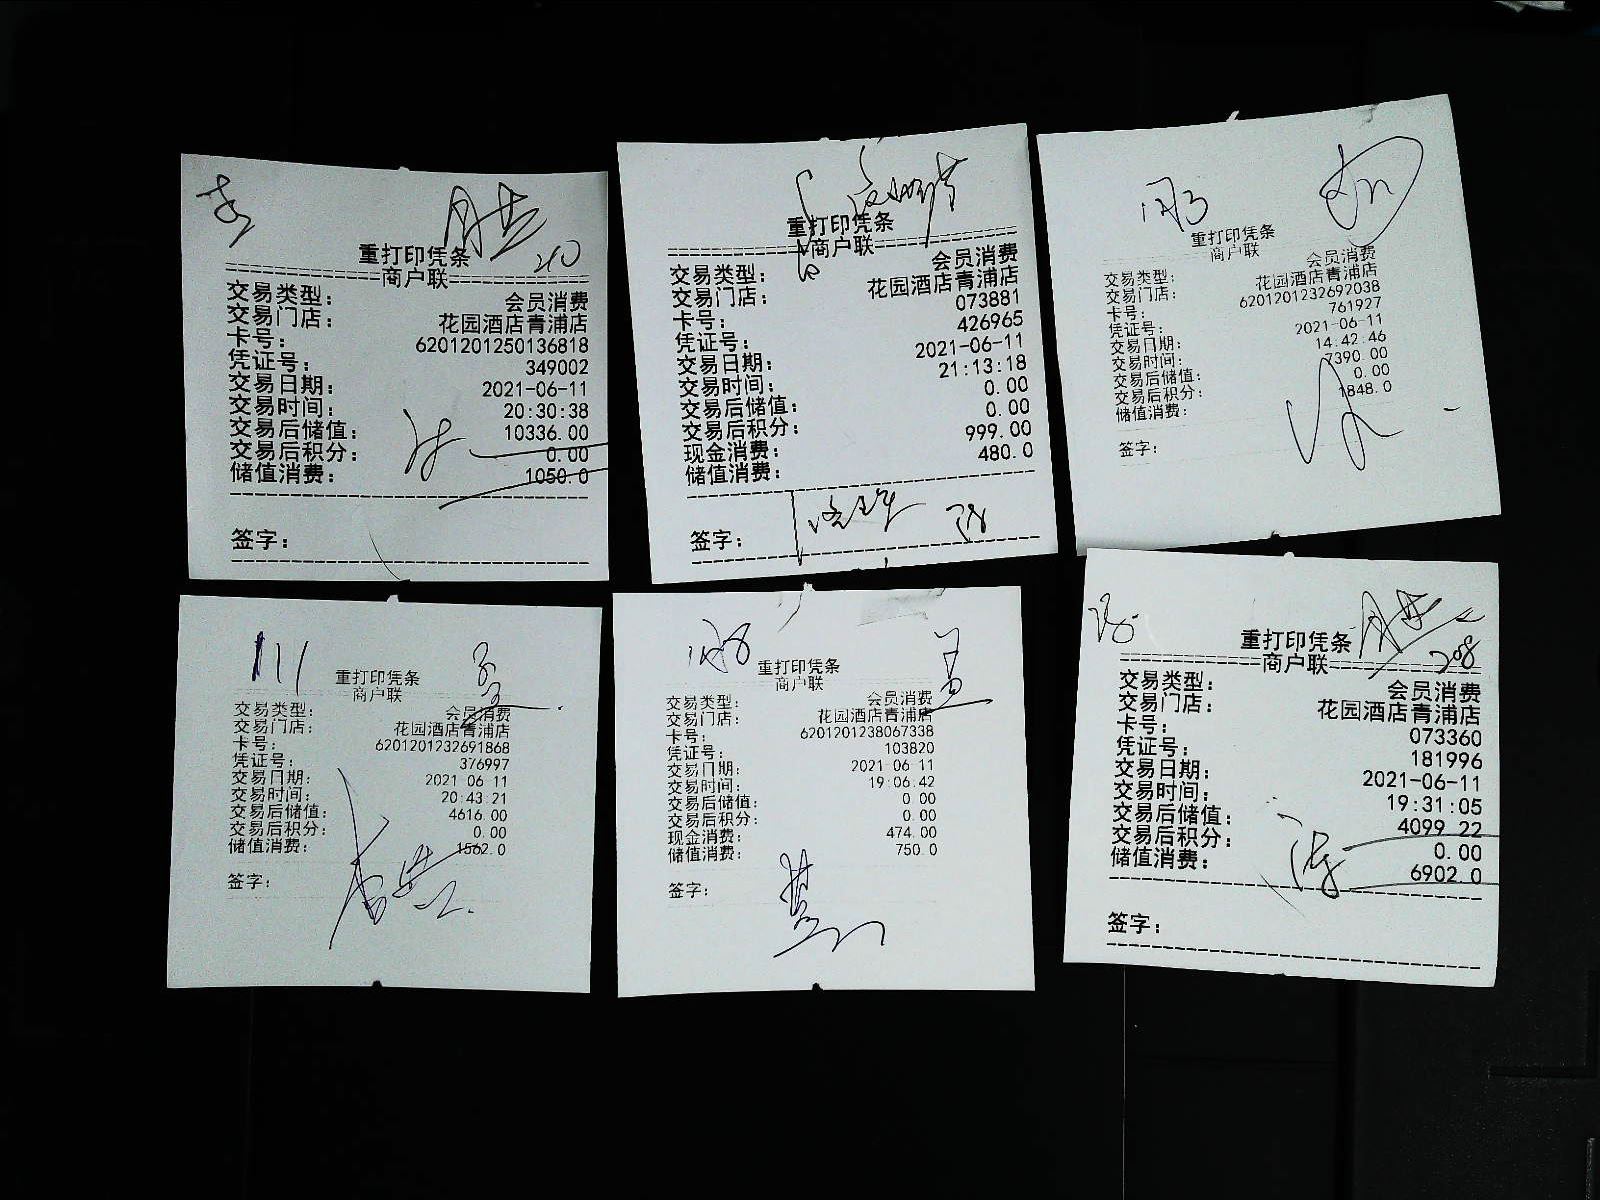 重打印凭条
商户联
交易类型： 会员消费
交易门店： 花园酒店青浦店
卡号： 6201201250136818
凭证号： 349002
交易日期： 2021-06-11
交易时间： 20:30:38
交易后储值： 10336.00
交易后积分： 0.00
储值消费： 1050.0
签字：
重打印凭条
商户联
交易类型： 会员消费
交易门店： 花园酒店青浦店
卡号： 073881
凭证号： 426965
交易日期： 2021-06-11
交易时间： 21:13:18
交易后储值： 0.00
交易后积分： 0.00
现金消费： 999.00
储值消费： 480.0
签字：
重打印凭条
商户联
交易类型： 会员消费
交易门店： 花园酒店青浦店
卡号： 6201201232692038
凭证号： 761927
交易日期： 2021-06-11
交易时间： 14:42:46
交易后储值： 7390.00
交易后积分： 0.00
储值消费： 1848.0
签字：
重打印凭条
商户联
交易类型： 会员消费
交易门店： 花园酒店青浦店
卡号： 6201201232691868
凭证号： 376997
交易日期： 2021-06-11
交易时间： 20:43:21
交易后储值： 4616.00
交易后积分： 0.00
储值消费： 1562.0
签字：
重打印凭条
商户联
交易类型： 会员消费
交易门店： 花园酒店青浦店
卡号： 6201201238067338
凭证号： 103820
交易日期： 2021-06-11
交易时间： 19:06:42
交易后储值： 0.00
交易后积分： 0.00
现金消费： 474.00
储值消费： 750.0
签字：
208
重打印凭条
商户联
交易类型： 会员消费
交易门店： 花园酒店青浦店
卡号： 073360
凭证号： 181996
交易日期： 2021-06-11
交易时间： 19:31:05
交易后储值： 4099.22
交易后积分： 0.00
储值消费： 6902.0
签字：